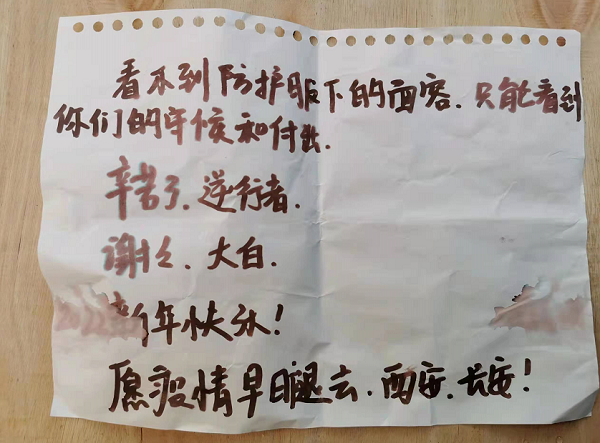 看不到防护服下的面容.只能看到
你们的守候和付出.
辛苦了.逆行者.
谢谢.大白.
新年快乐!
愿疫情早日退去.西安.长安!